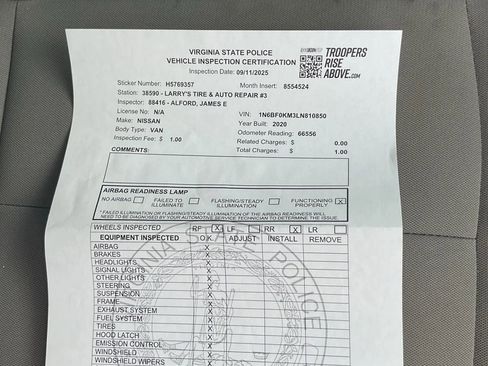 VIRGINIA STATE POLICE
VEHICLE INSPECTION CERTIFICATION
Inspection Date: 09/11/2025
TROOPERS
RISE
ABOVE.COM
Sticker Number: H5769357 Month Insert: 8554524
Station: 38590 - LARRY'S TIRE & AUTO REPAIR #3
Inspector: 88416 - ALFORD, JAMES E
License No: N/A VIN: 1N6BF0KM3LN810850
Make: NISSAN Year Built: 2020
Body Type: VAN Odometer Reading: 66556
Inspection Fee: $ 1.00 Related Charges: $ 0.00
Total Charges: $ 1.00
COMMENTS:
AIRBAG READINESS LAMP
NO AIRBAG FAILED TO ILLUMINATE FLASHING/STEADY ILLUMINATION FUNCTIONING PROPERLY X
* FAILED ILLUMINATION OR FLASHING/STEADY ILLUMINATION OF THE AIRBAG READINESS LAMP WILL
NEED TO BE DIAGNOSED BY YOUR AUTOMOTIVE SERVICE TECHNICIAN TO DETERMINE THE ISSUE.
WHEELS INSPECTED RF X LF RR X LR
EQUIPMENT INSPECTED O.K. ADJUST INSTALL REMOVE
AIRBAG X
BRAKES X
HEADLIGHTS X
SIGNAL LIGHTS X
OTHER LIGHTS X
STEERING X
SUSPENSION X
FRAME X
EXHAUST SYSTEM X
FUEL SYSTEM X
TIRES X
HOOD LATCH X
EMISSION CONTROL X
WINDSHIELD X
WINDSHIELD WIPERS X
VIRGINIA STATE POLICE